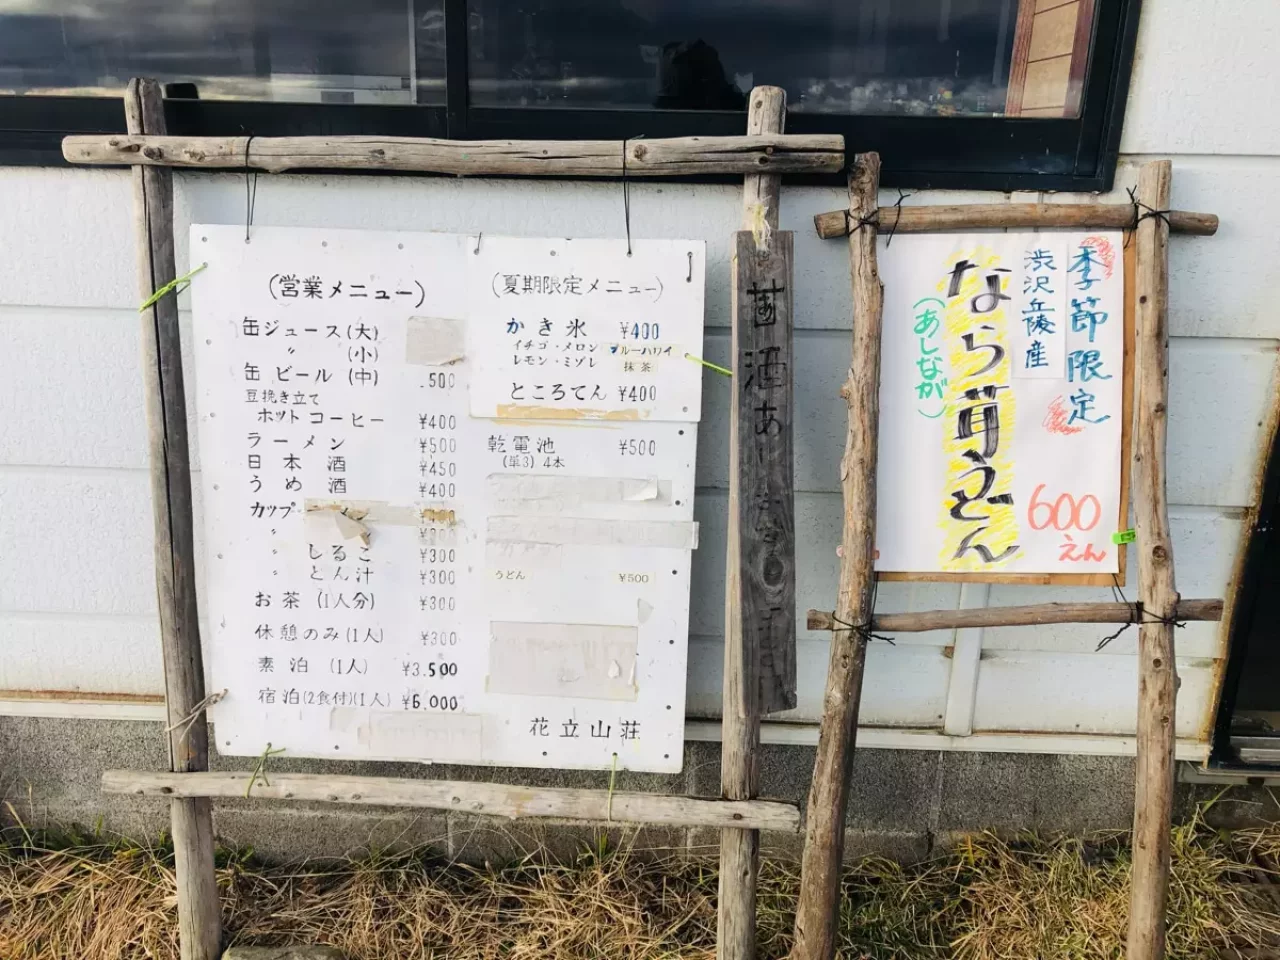 (営業メニュー)
缶ジュース(大)
〃 (小)
缶ビール (中) 500
豆挽き立て
ホットコーヒー ¥400
ラーメン ¥500
日本酒 ¥450
うめ酒 ¥400
カップ
〃 しるこ ¥300
〃 とん汁 ¥300
お茶 (1人分) ¥300
休憩のみ(1人) ¥300
素泊 (1人) ¥3.500
宿泊(2食付)(1人) ¥6,000
(夏期限定メニュー)
かき氷 ¥400
イチゴ・メロン ブルーハワイ
レモン・ミゾレ 抹茶
ところてん ¥400
乾電池 ¥500
(単3) 4本
うどん ¥500
花立山荘
酒あ
季節限定
渋沢丘陵産
なら茸うどん
(あしなが)
600
えん